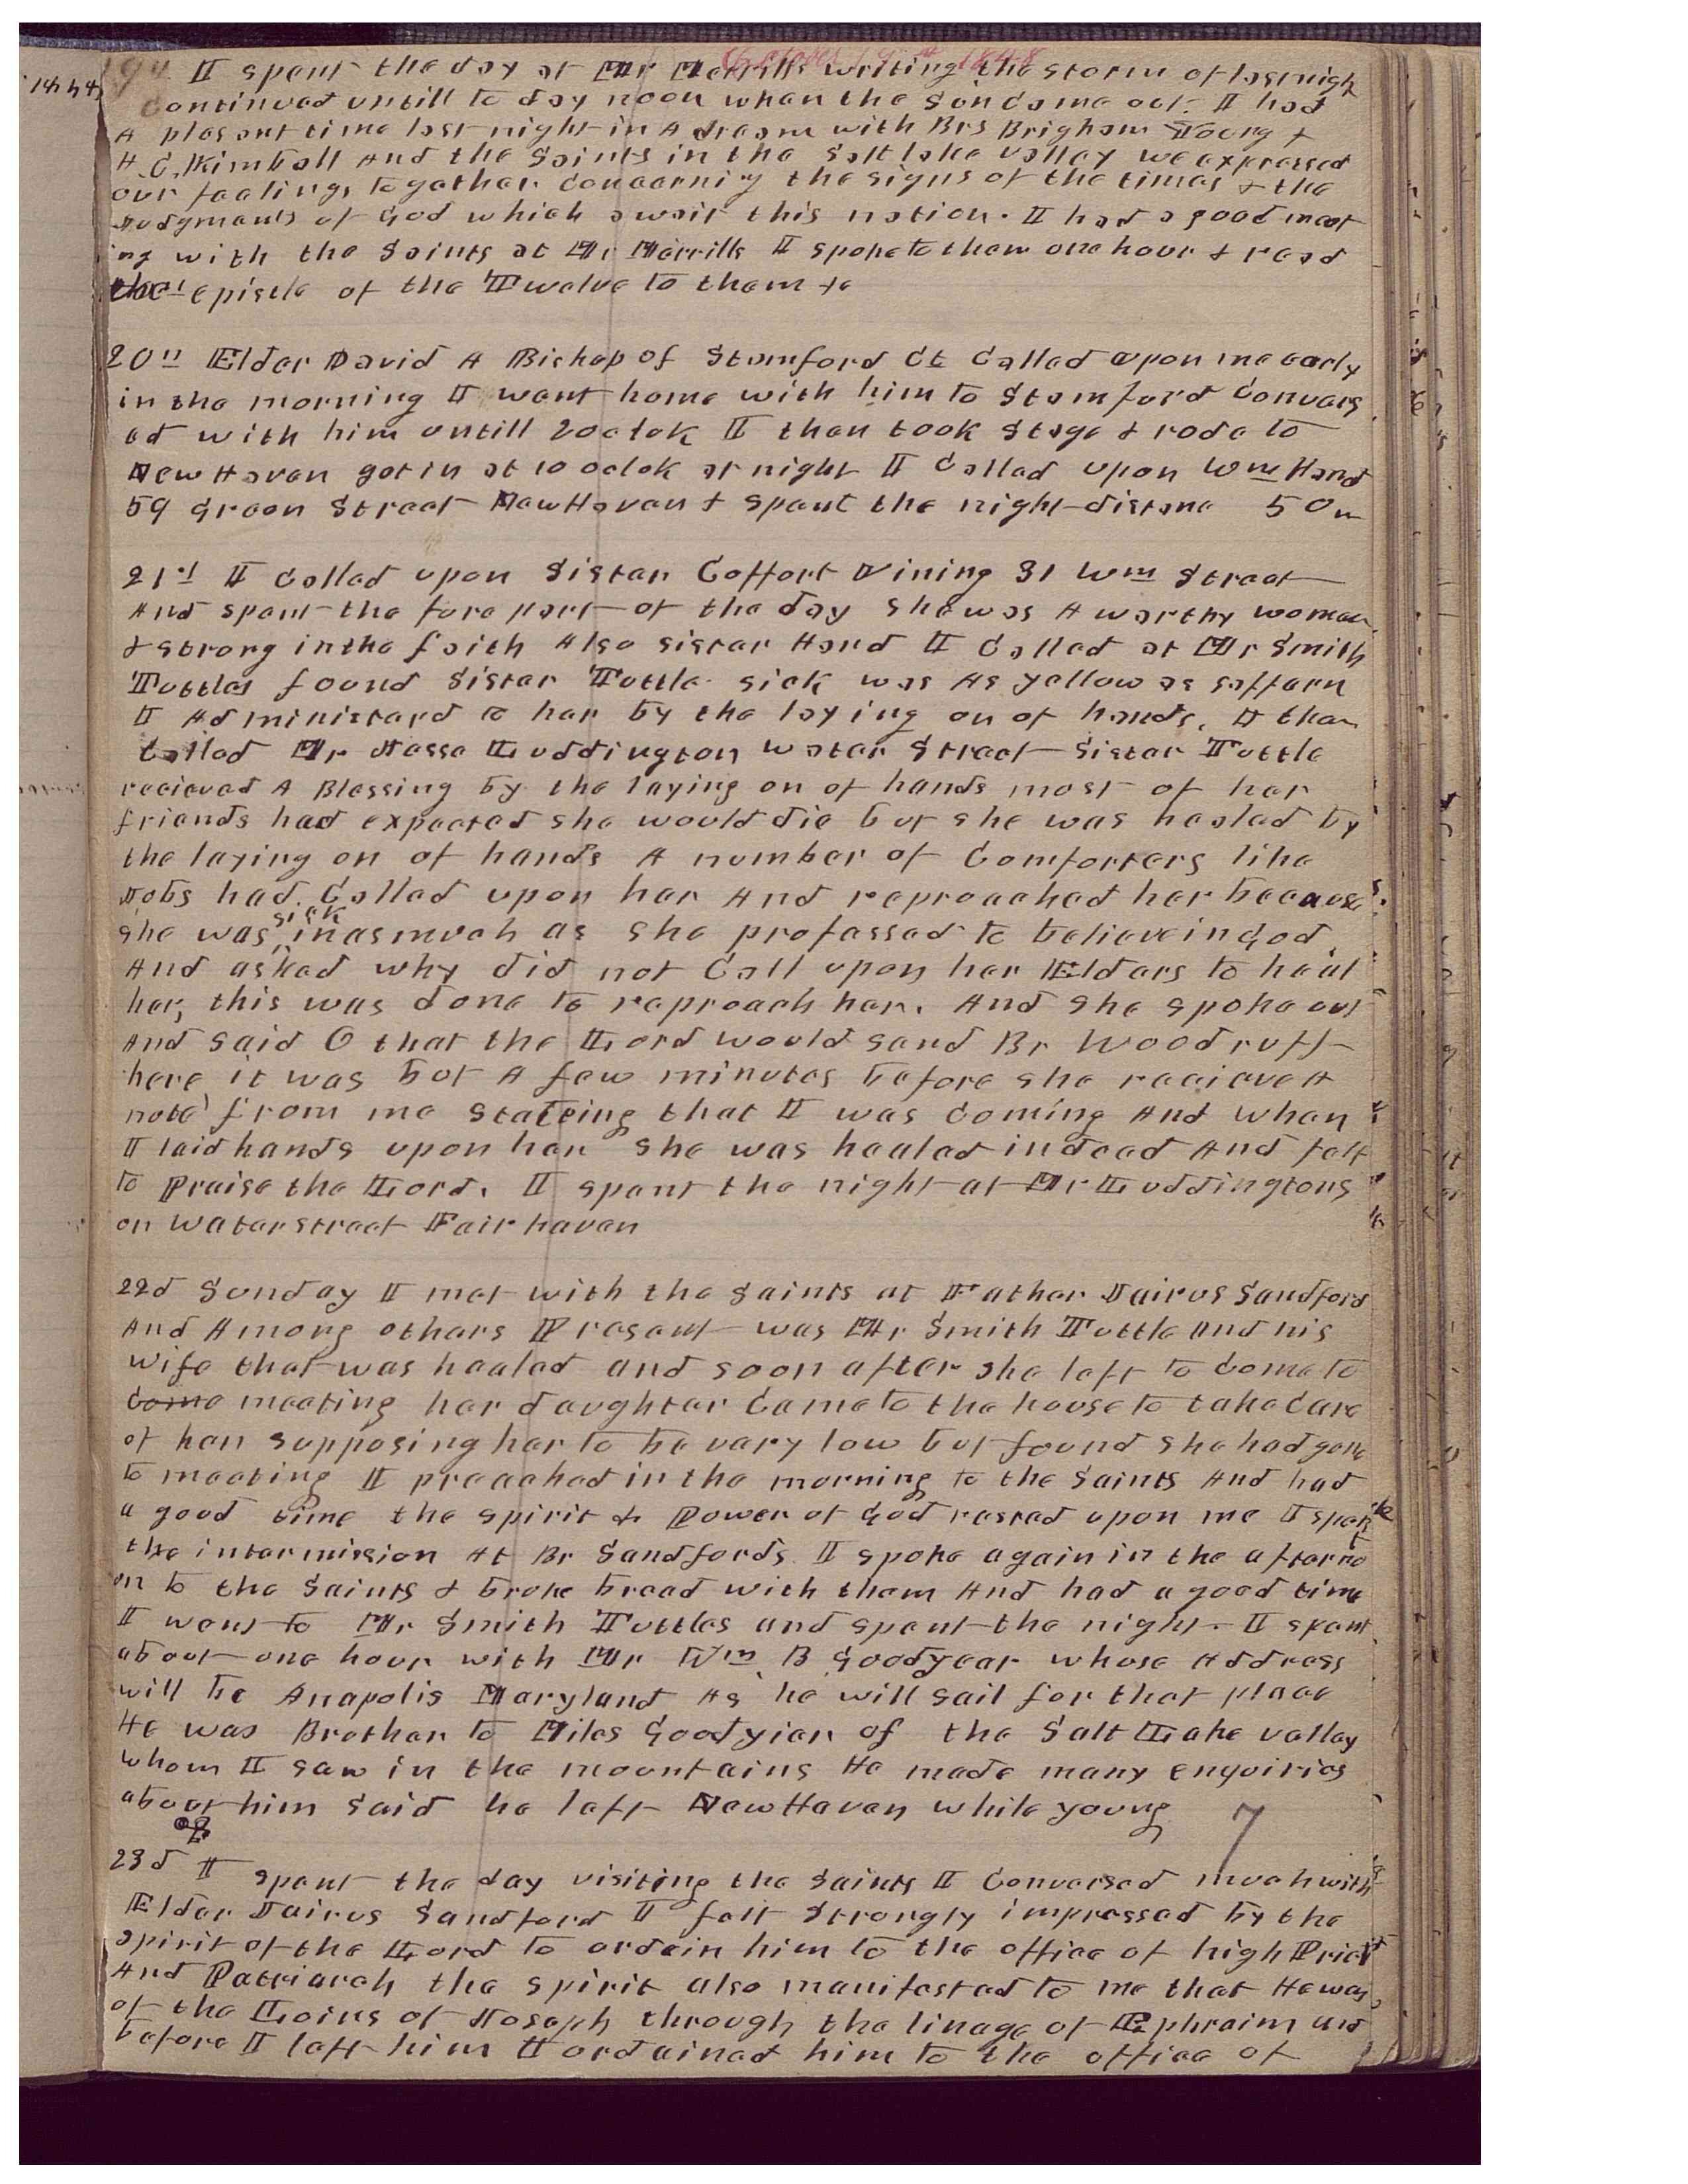 October 19th 1848
194 I spent the day at Mr Merrills writing the storm of last nigh
continued untill to day noon when the Sun Came out. I had
A plesant time last night in A dream with Brs Brigham Young &
H. C. Kimball And the Saints in the Salt lake valley we expressed
our feelings together concerning the signs of the times & the
Judgments of God which await this nation. I had a good meet
ing with the Saints at Mr Merrills I spoke to them one hour & read
the epistle of the Twelve to them &c
20th Elder David A Bishop of Stamford Ct Called upon me early
in the morning I went home with him to Stamford Convers
ed with him untill 2 oclok I then took Stage & rode to
New Haven got in at 10 oclok at night I Called upon Wm Hand
59 Green Street New Haven & spent the night distane 50 m
21st I Called upon Sister Coffort Vining 31 Wm Street
And spent the fore part of the day She was A worthy woman
& strong in the faith Also sister Hand I Called at Mr Smith
Tuttles found Sister Tuttle sick was As yellow as saffarn
I Administered to her by the laying on of hands, I then
Called Mr Jesse Luddington Water Street Sister Tuttle
recieved A Blessing by the laying on of hands most of her
friends had expected she would die but she was healed by
the laying on of hands A number of Comforters like
Jobs had Called upon her And reproached her because
sick
she was inasmuch as she professed to believe in God.
And asked why did not Call upon her Elders to heal
her, this was done to reproach her. And she spoke out
And said O that the Lord would send Br Woodruff
here it was but A few minutes before she recieve A
note from me stateing that I was Coming And when
I laid hands upon her she was healed indeed And felt
to Praise the Lord. I spent the night at Mr Luddingtons
on Water street Fair haven
22d Sunday I met with the Saints at Father Jairus Sandford
And Among others Present was Mr Smith Tuttle and his
wife that was healed and soon after she left to Come to
Come meeting her daughter Came to the house to take Care
of her supposing her to be very low but found she had gone
to meeting I preached in the morning to the Saints And had
a good time the spirit & Power of God rested upon me I spent
the intermission At Br Sandfords I spoke again in the afterno
on to the Saints & broke bread with them And had a good time
I went to Mr Smith Tuttles and spent the night. I spent
about one hour with Mr Wm B Goodyear whose Address
will be Anapolis Maryland As he will sail for that place
He was Brother to Miles Goodyier of the Salt Lake valley
whom I saw in the mountains He made many enquiries
about him said he left New Haven while young
7
23d I spent the day visiting the Saints I Conversed much with
Elder Jairus Sandford I felt Strongly impressed by the
spirit of the Lord to ordein him to the office of high Priest
And Patriarch the spirit also manifested to me that He was
of the Loins of Joseph through the linage of Ephraim and
before I left him I ordained him to the office of